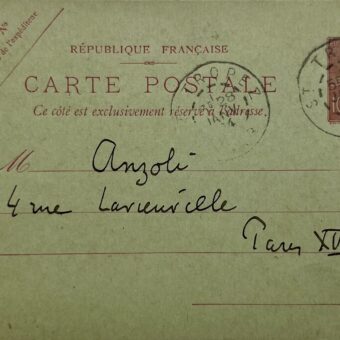 No
de l'expéditeur
RÉPUBLIQUE FRANÇAISE
CARTE POSTALE
Ce côté est exclusivement réservé à l'adresse.
ST TR
TROPE
28
M Anzoli
4 rue Larienville
Paris XV